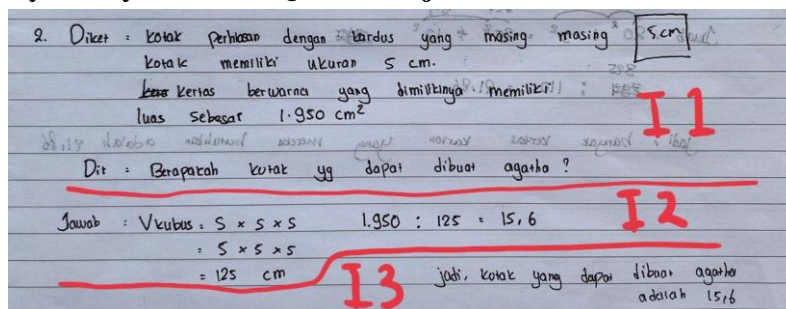 2. Diket : kotak perhiasan dengan kardus yang masing masing 5 cm
kotak memiliki ukuran 5 cm.
kertas berwarna yang dimilikinya memiliki
luas sebesar 1.950 cm²
I1
Dit : Berapakah kotak yg dapat dibuat agatha ?
I2
Jawab : Vkubus = S × S × S 1.950 : 125 = 15,6
= 5 × 5 × 5
= 125 cm
I3
jadi, kotak yang dapat dibuat agatha
adalah 15,6